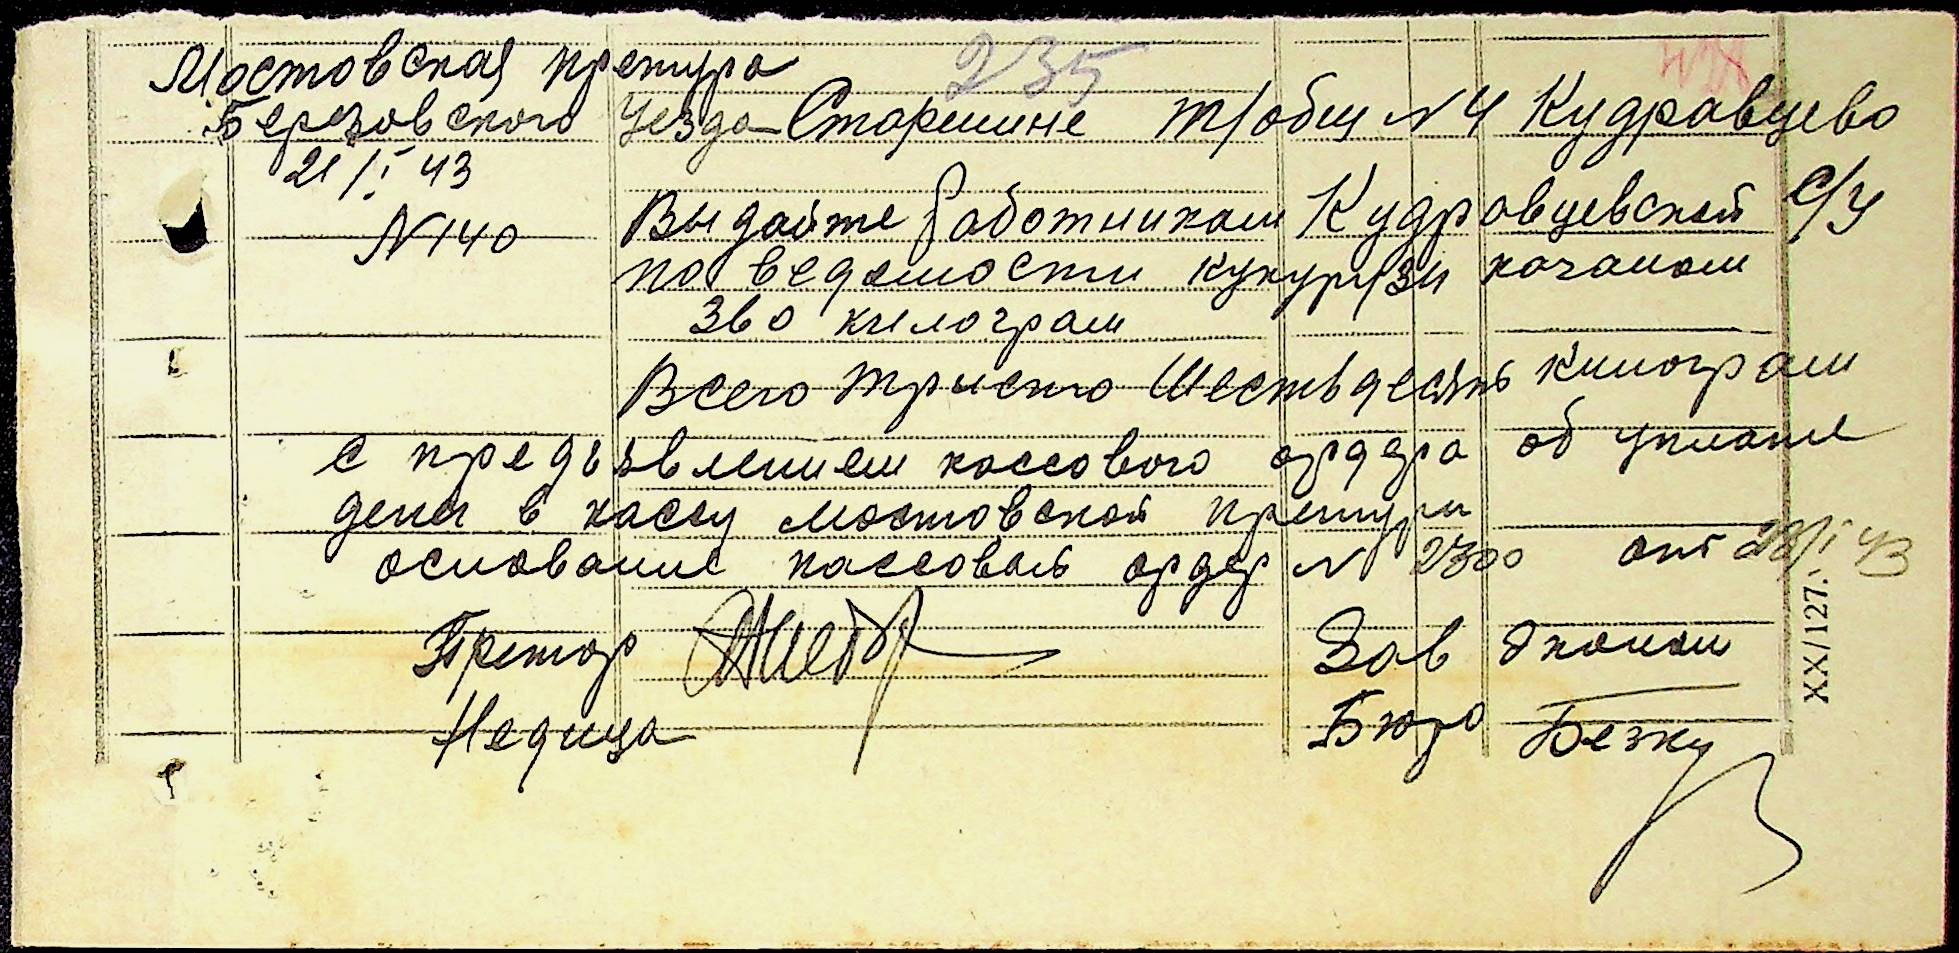 235
Мостовская претура
Березовского уезда Старшине т/общ №4 Кудравцево
21/I 43
№140
Выдайте работникам Кудровцевской с/у
по ведомости кукурузы качаном
360 килограм
Всего триста шестьдесять килограм
с предъявлением кассового ордера об уплате
денег в кассу мостовской претуры
основание кассовый ордер № 2300 от 28/I 43
Претор
Недица
Зав Эконом
Бюро Безку
XX/127.